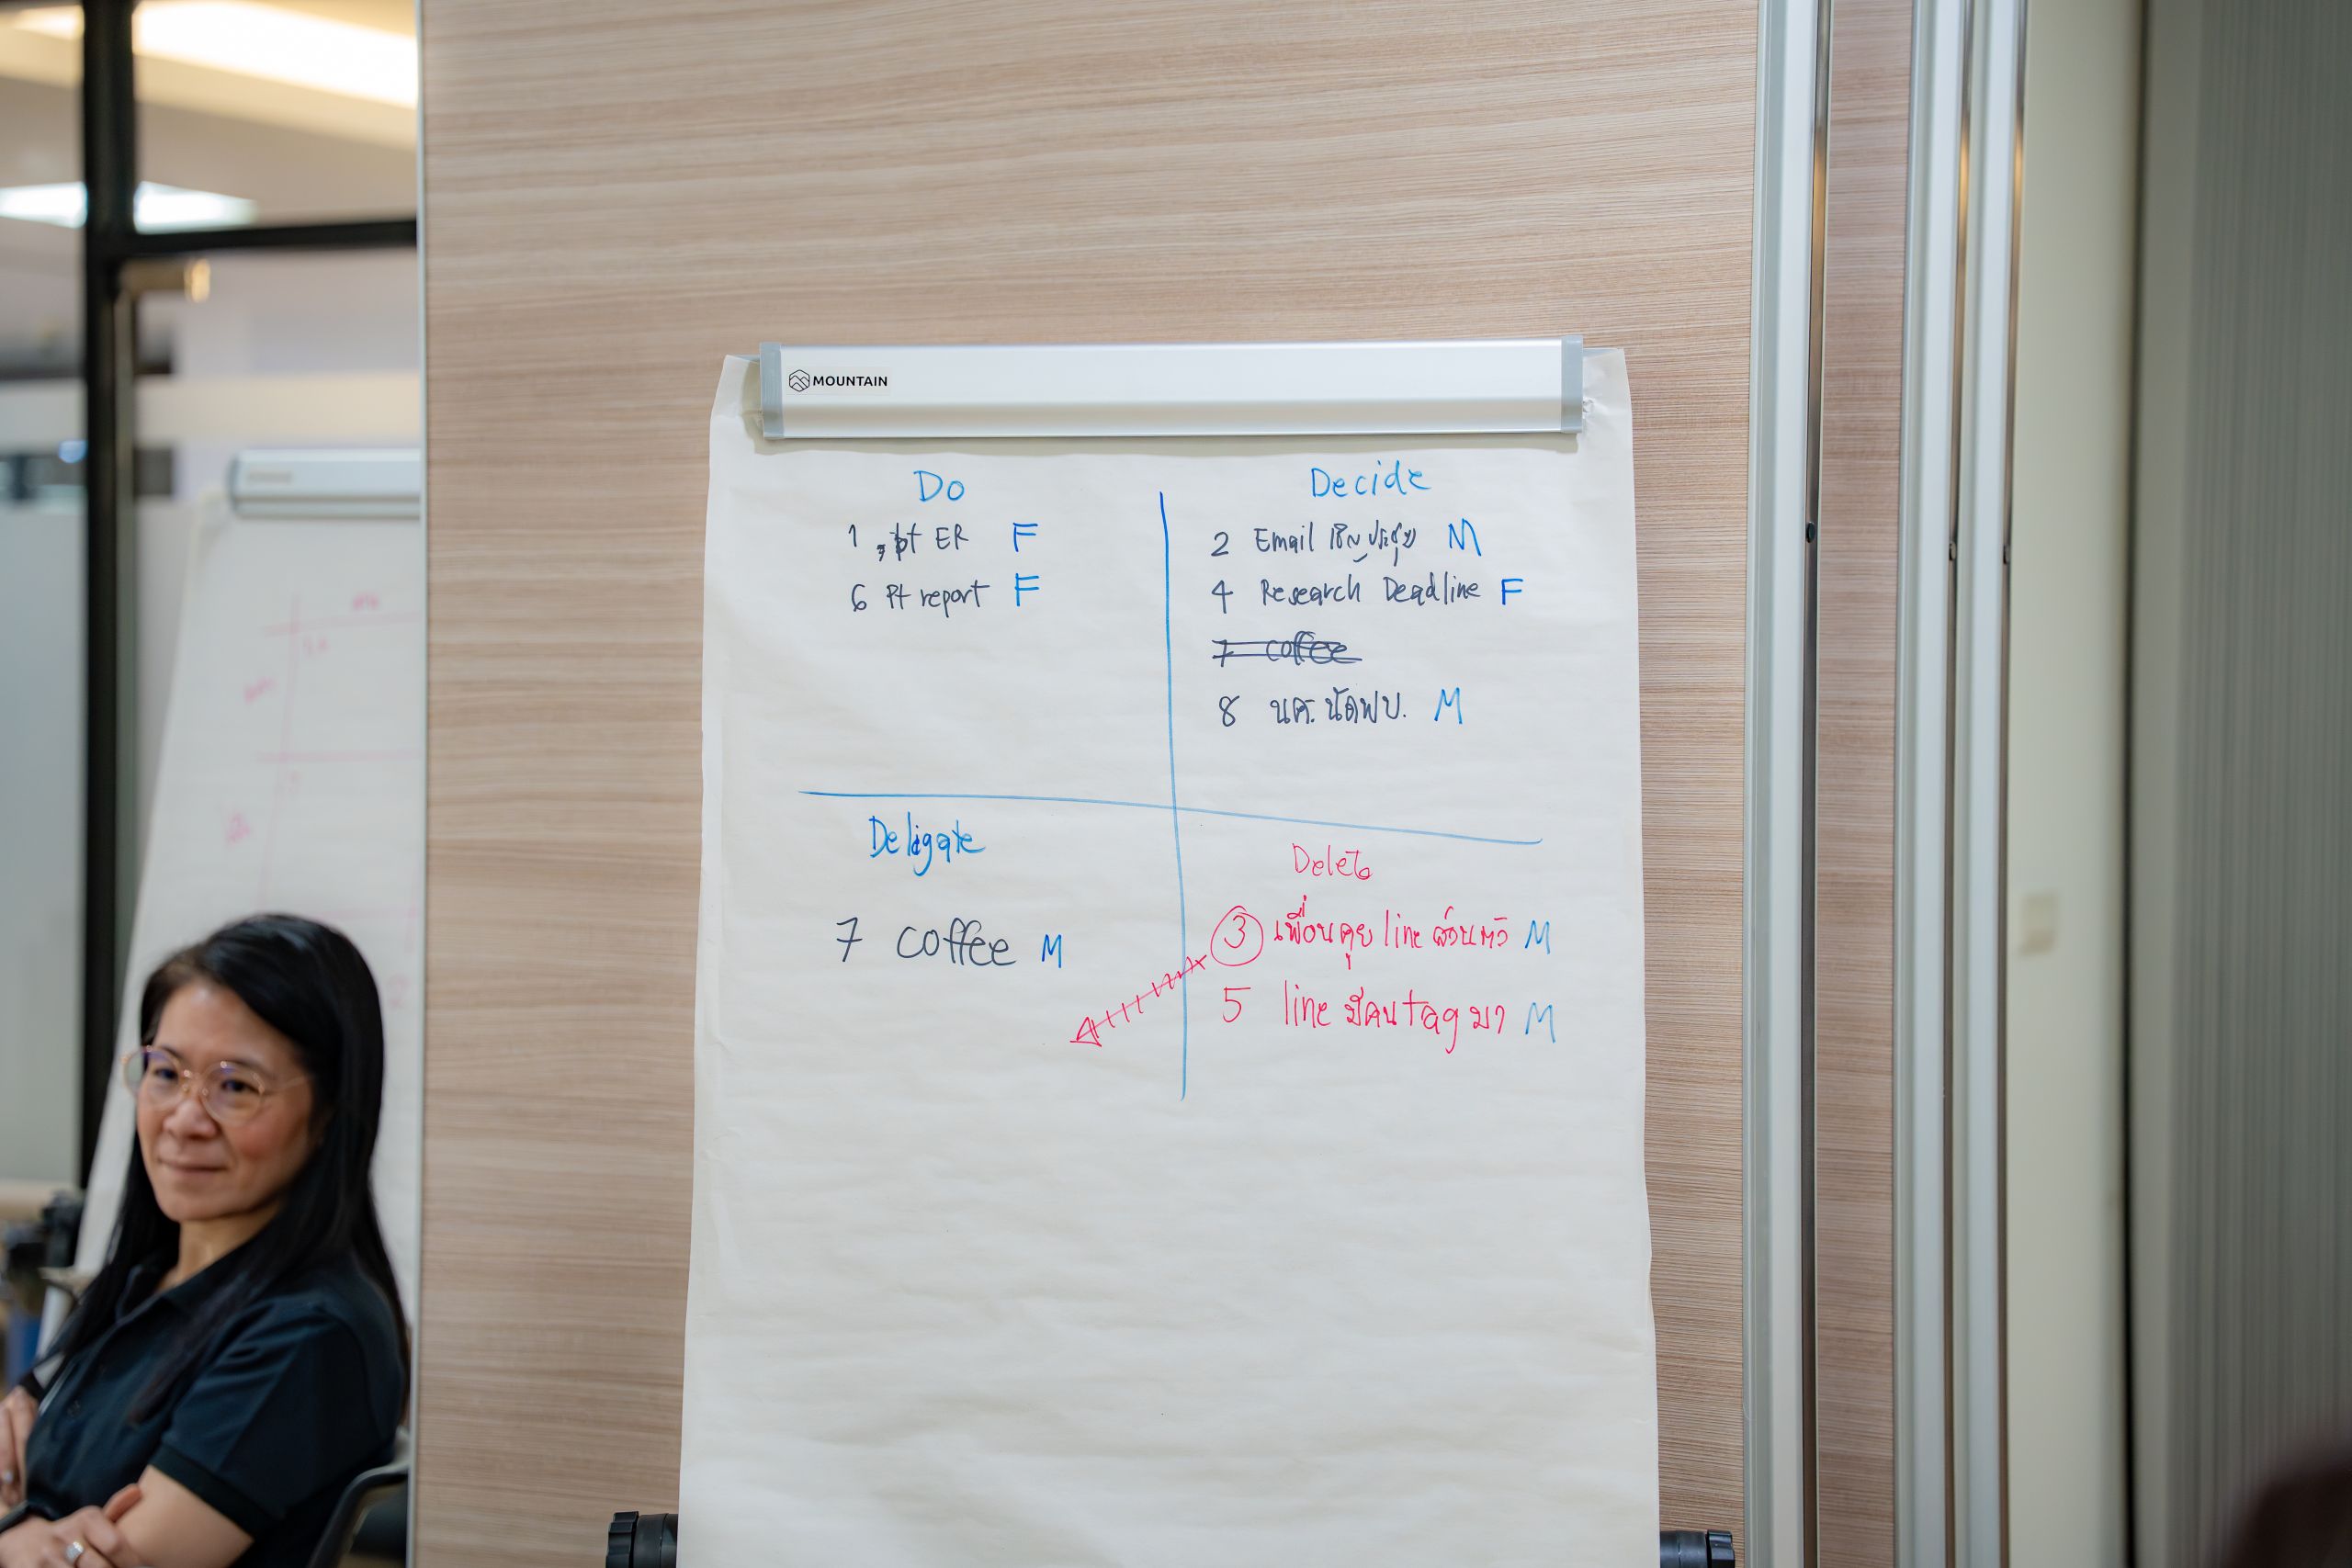 MOUNTAIN
Do
1 pt ER F
6 Pt report F
Decide
2 Email เชิญประชุม M
4 Research Deadline F
7 coffee
8 นศ. นัดพบ. M
Deligate
7 coffee M
Delete
3 เพื่อนคุย line ส่วนตัว M
5 line มีคน tag มา M